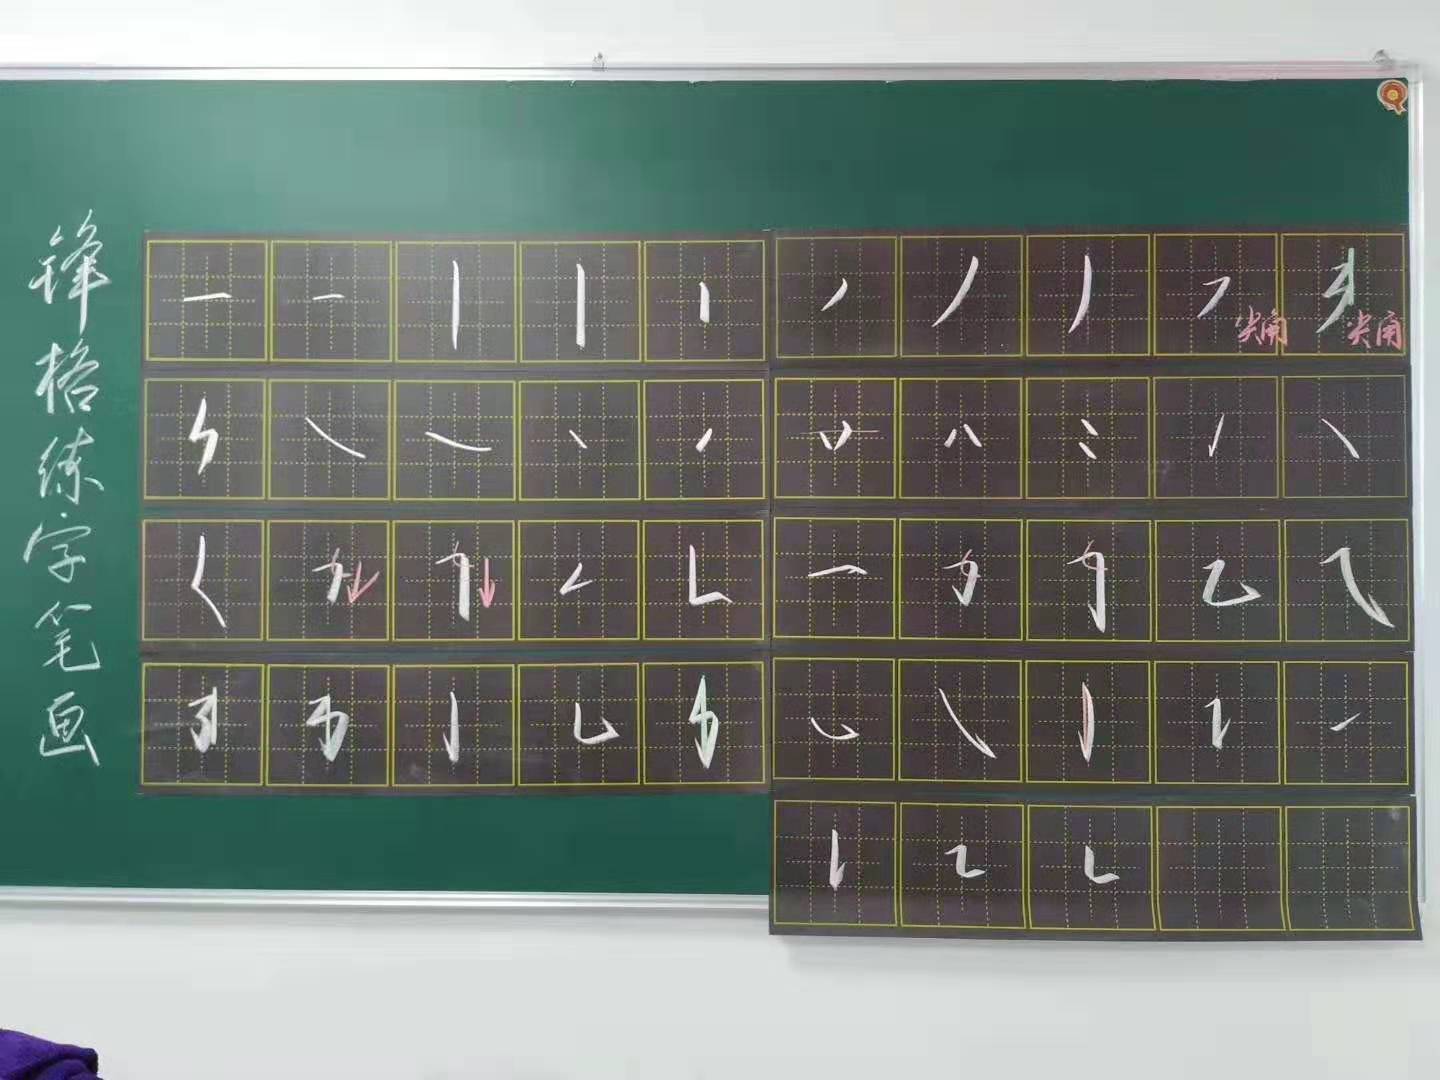 锋格练字笔画
尖角
尖角